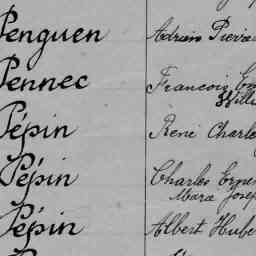 Penguen Adrien Pierre
Pennec François
Pépin René Charles
Pépin Charles Ernes
Marie Josep
Pépin Albert Hube